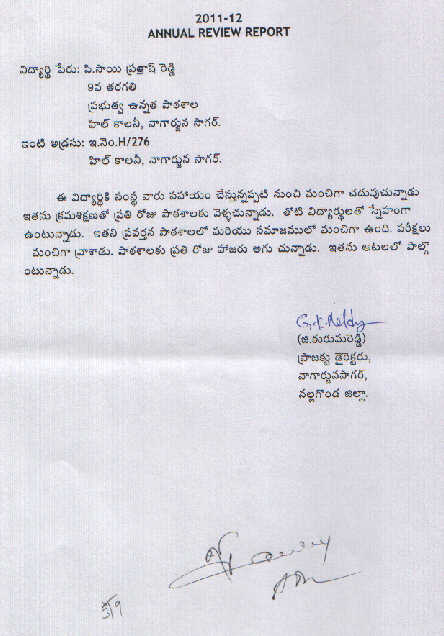 2011-12
ANNUAL REVIEW REPORT
విద్యార్థి పేరు: పి.సాయి ప్రకాష్ రెడ్డి
9వ తరగతి
ప్రభుత్వ ఉన్నత పాఠశాల
హిల్ కాలనీ, నాగార్జున సాగర్.
ఇంటి అడ్రసు: ఇ.నెం.H/276
హిల్ కాలనీ, నాగార్జున సాగర్.
ఈ విద్యార్థికి సంస్థ వారు సహాయం చేస్తున్నప్పటి నుంచి మంచిగా చదువుచున్నాడు
ఇతను క్రమశిక్షణతో ప్రతి రోజు పాఠశాలకు వెళ్ళచున్నాడు. తోటి విద్యార్థులతో స్నేహంగా
ఉంటున్నాడు. ఇతని ప్రవర్తన పాఠశాలలో మరియు సమాజములో మంచిగా ఉంది. పరీక్షలు
మంచిగా వ్రాశాడు. పాఠశాలకు ప్రతి రోజు హాజరు అగు చున్నాడు. ఇతను ఆటలలో పాల్గొ
ంటున్నాడు.
G.K.Reddy
(జి.కురుమరెడ్డి)
ప్రాజెక్టు డైరెక్టరు,
నాగార్జునసాగర్,
నల్లగొండ జిల్లా.